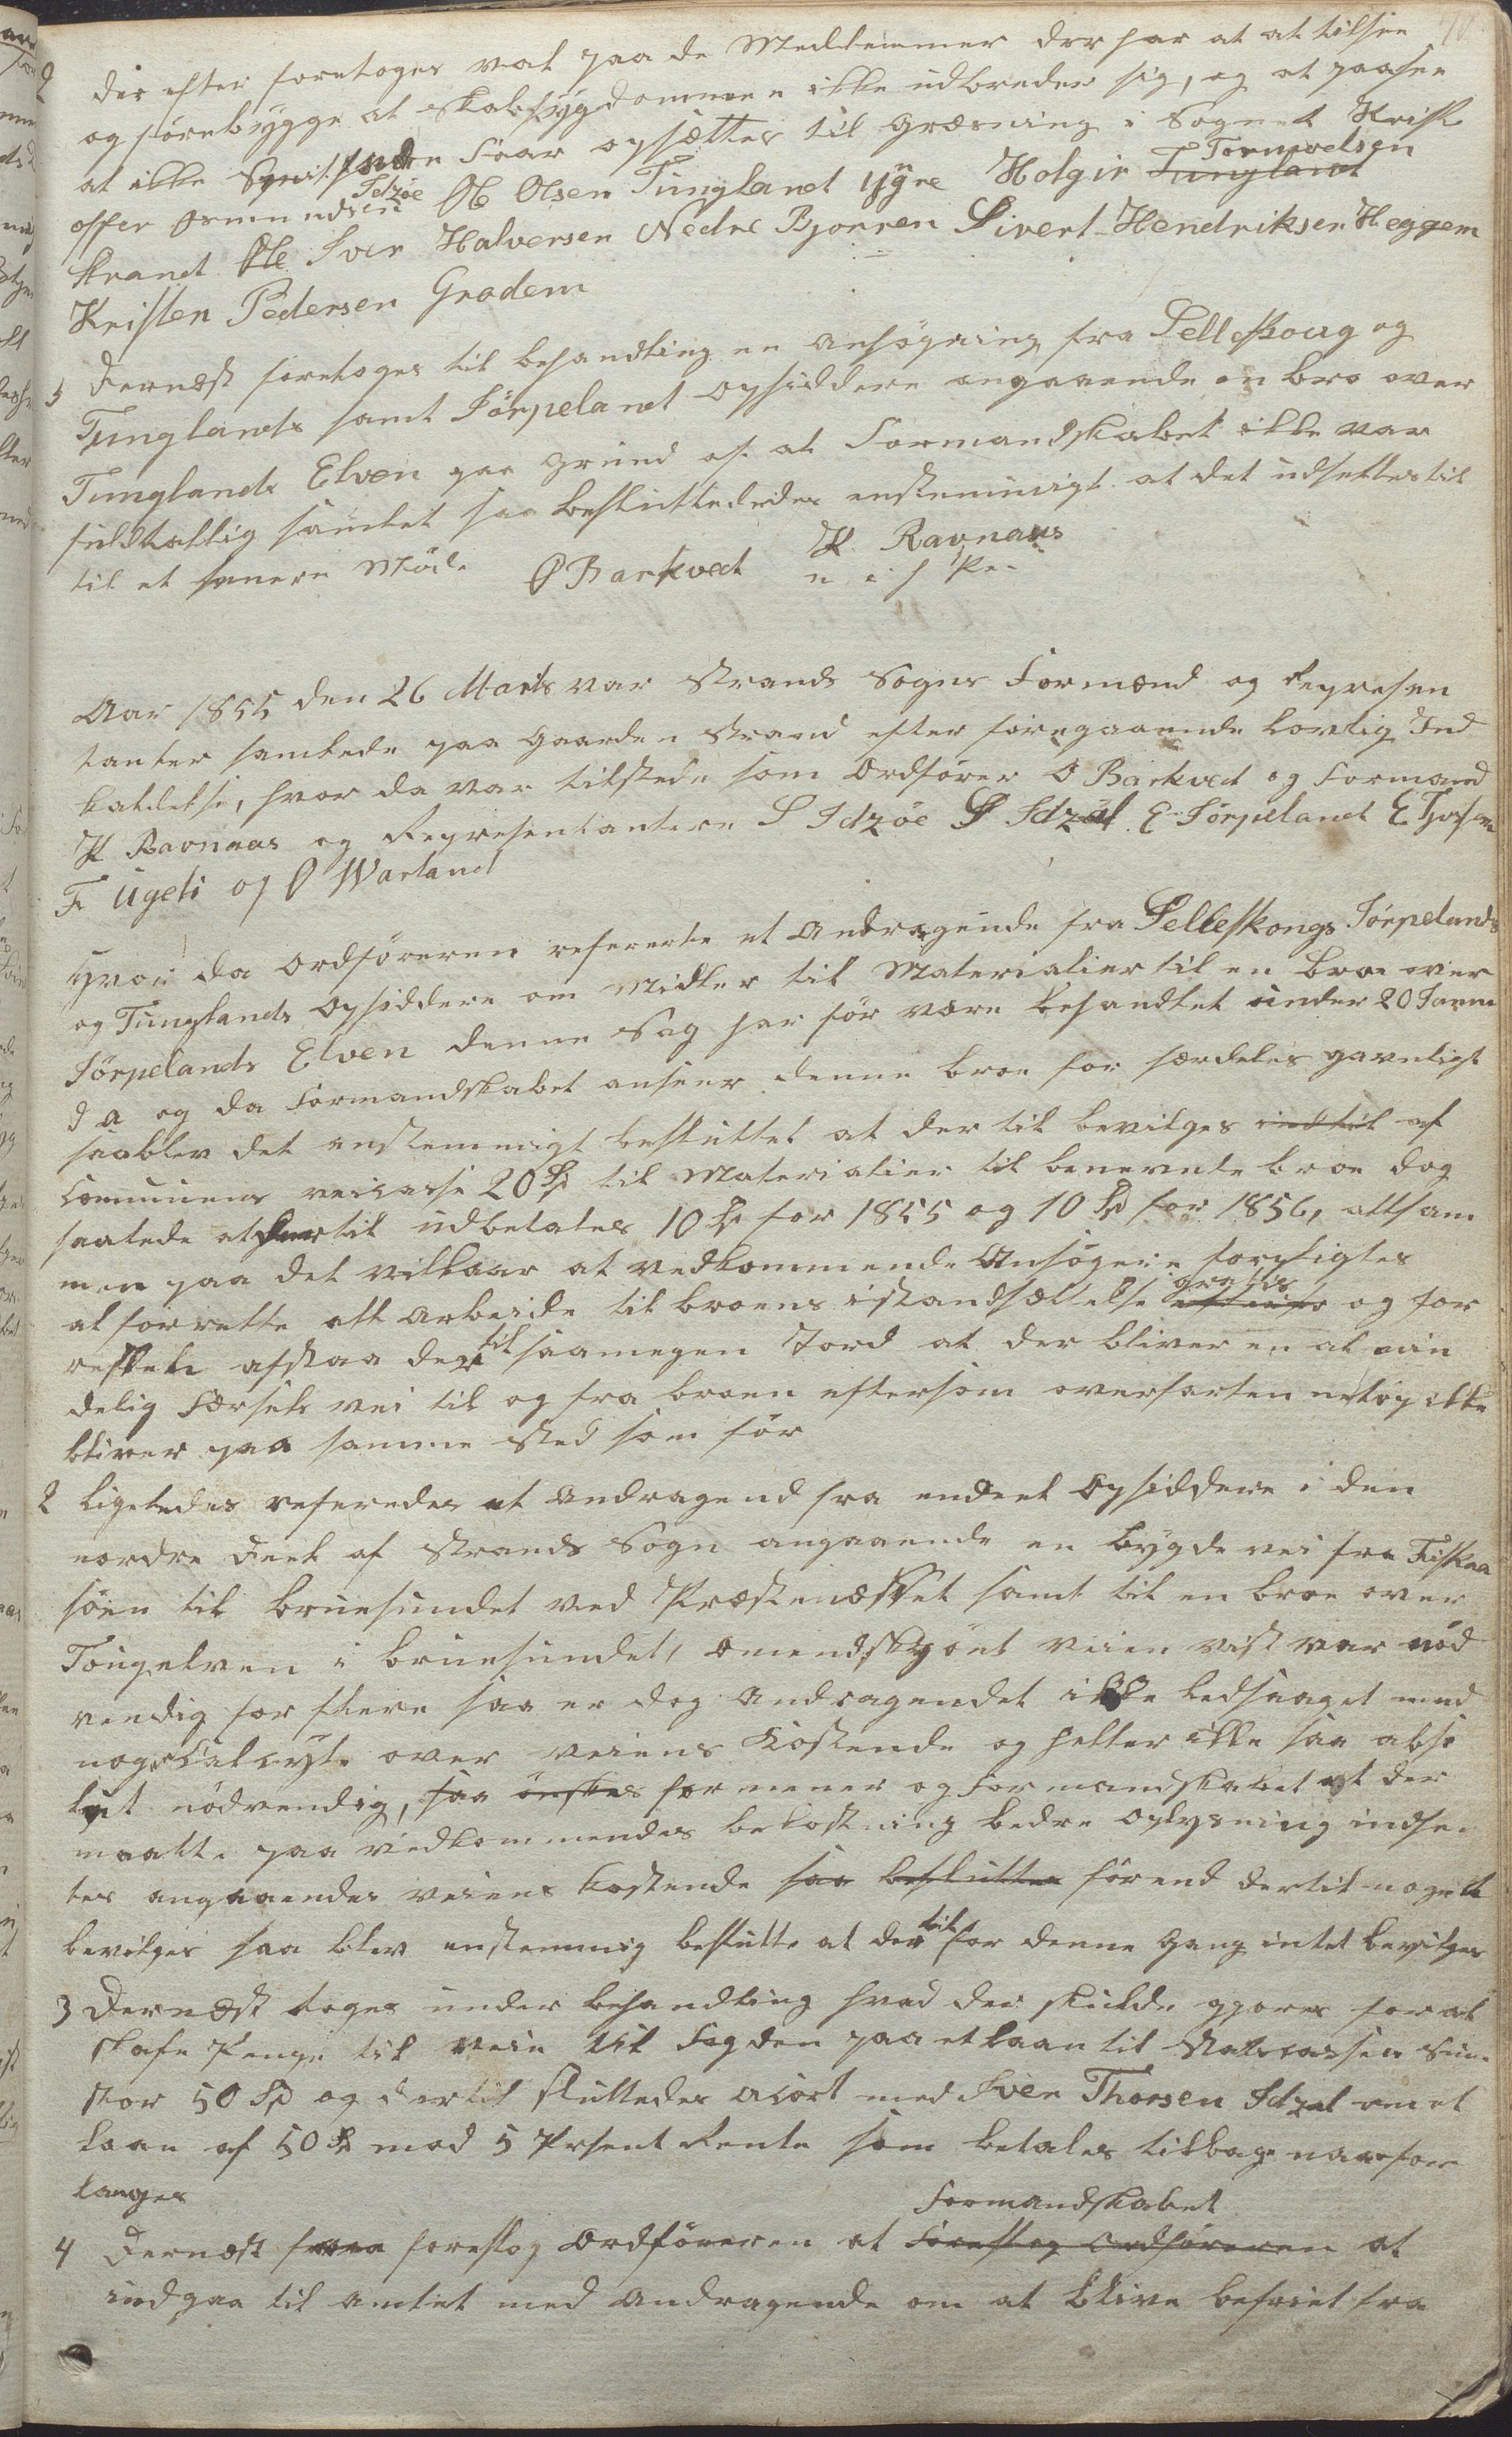 70
2 der efter foretoges val paa de Medlemmer der har at at tilsee
og förebygge at skabsÿgdommen ikke udbreder sig, og at paasee
at ikke Faar opsættes til græsning i Sognet
offer Osmundsen Idzöe Ole Olsen Tungland ÿgre Holgir Tungland Tormodsen
strand Ole Iver Halversen Nedre Bjorren Sivert Hendriksen Heggem
Kristen Pedersen Grodem
3 Dernæst foretoges til behandling en Ansögning fra Selleskoug og
Tunglands samt Jörpeland Opsiddere angaaende en bro over
Tunglands Elven paa Grund af at Formandskabet ikke var
fuldtallig samlet saa besluttededes enstemmigt at det udsettes til
til et senere Möde O Barkved K Ravnaas
Aar 1855 den 26 Marts var Strands Sogns Formænd og Represen
tanter samlede paa Gaarden Strand efter foregaaende lovlig Ind
kaldelse, hvor da var tilstede som Ordförer O Barkved og Formand
K Ravnaas og Representantere S Idzöe S Idzal E Jörpeland E Tjosem
F Ugeli og O Warland
Hvor da Ordföreren refererte et Andragende fra Selleskougs Jörpelands
og Tunglands Opsiddere om Midler til Materialier til en broe over
Jörpelands Elven denne Sag har för være behandlet under 20 Janu
d a og da Formandskabet anseer denne broe for særdeles gavnligt
saa blev det enstemmigt besluttet at der til bevilges indtil af
Communens veicasse 20 Sp til Materialier til benevnte broe dog
saalede at dertil udbetales 10 Sp for 1855 og 10 Sp for 1856, altsam
men paa det vilkaar at vedkommende Ansögere forpligtes
at forrette alt Arbeide til broens istandsættelse gratis og for
resten afstaa der til saamegen Jord at der bliver en al min
delig Færsels vei til og fra broen eftersom overfarten netop ikke
bliver paa samme sted som för
2 ligeledes referedes et Andragend fra endeel Opsiddere i den
nordre Deel af Strands Sogn angaaende en bÿgdevei fra Fiskaa
söen til bruesundet ved Præstenæsset samt til en broe over
Tougelven i bruesundet, omendskjönt veien vist var nöd
vendig for flere saa er dog Andragendet ikke ledsaaget med
noge over veiens Kostende og heller ikke saa abso
lut nödvendig, saa önskes for mener og Formandskabet at der
maatte paa vedkommendes bekostning bedre oplysning indsen
tes angaaendes veiens kostende saa beslutter förend dertil noget
bevilges saa blev enstemmig beslutte at der til for denne Gang intet bevilges
3 Dernæst toges under behandling hvad der skulde gjöres for at
skafe Penge til veie til Fogden paa et laan til
stor 50 Sp og dertil sluttedes acort med Sven Thorsen Idzal om et
laan af 50 Sp mod 5 Prsent Rente som betales tilbage naar for
langes
4 Dernæst foreslog Ordföreren at Foreslog Ordföreren Formandskabet at
indgaa til Amtet med Andragende om at blive befriet fra